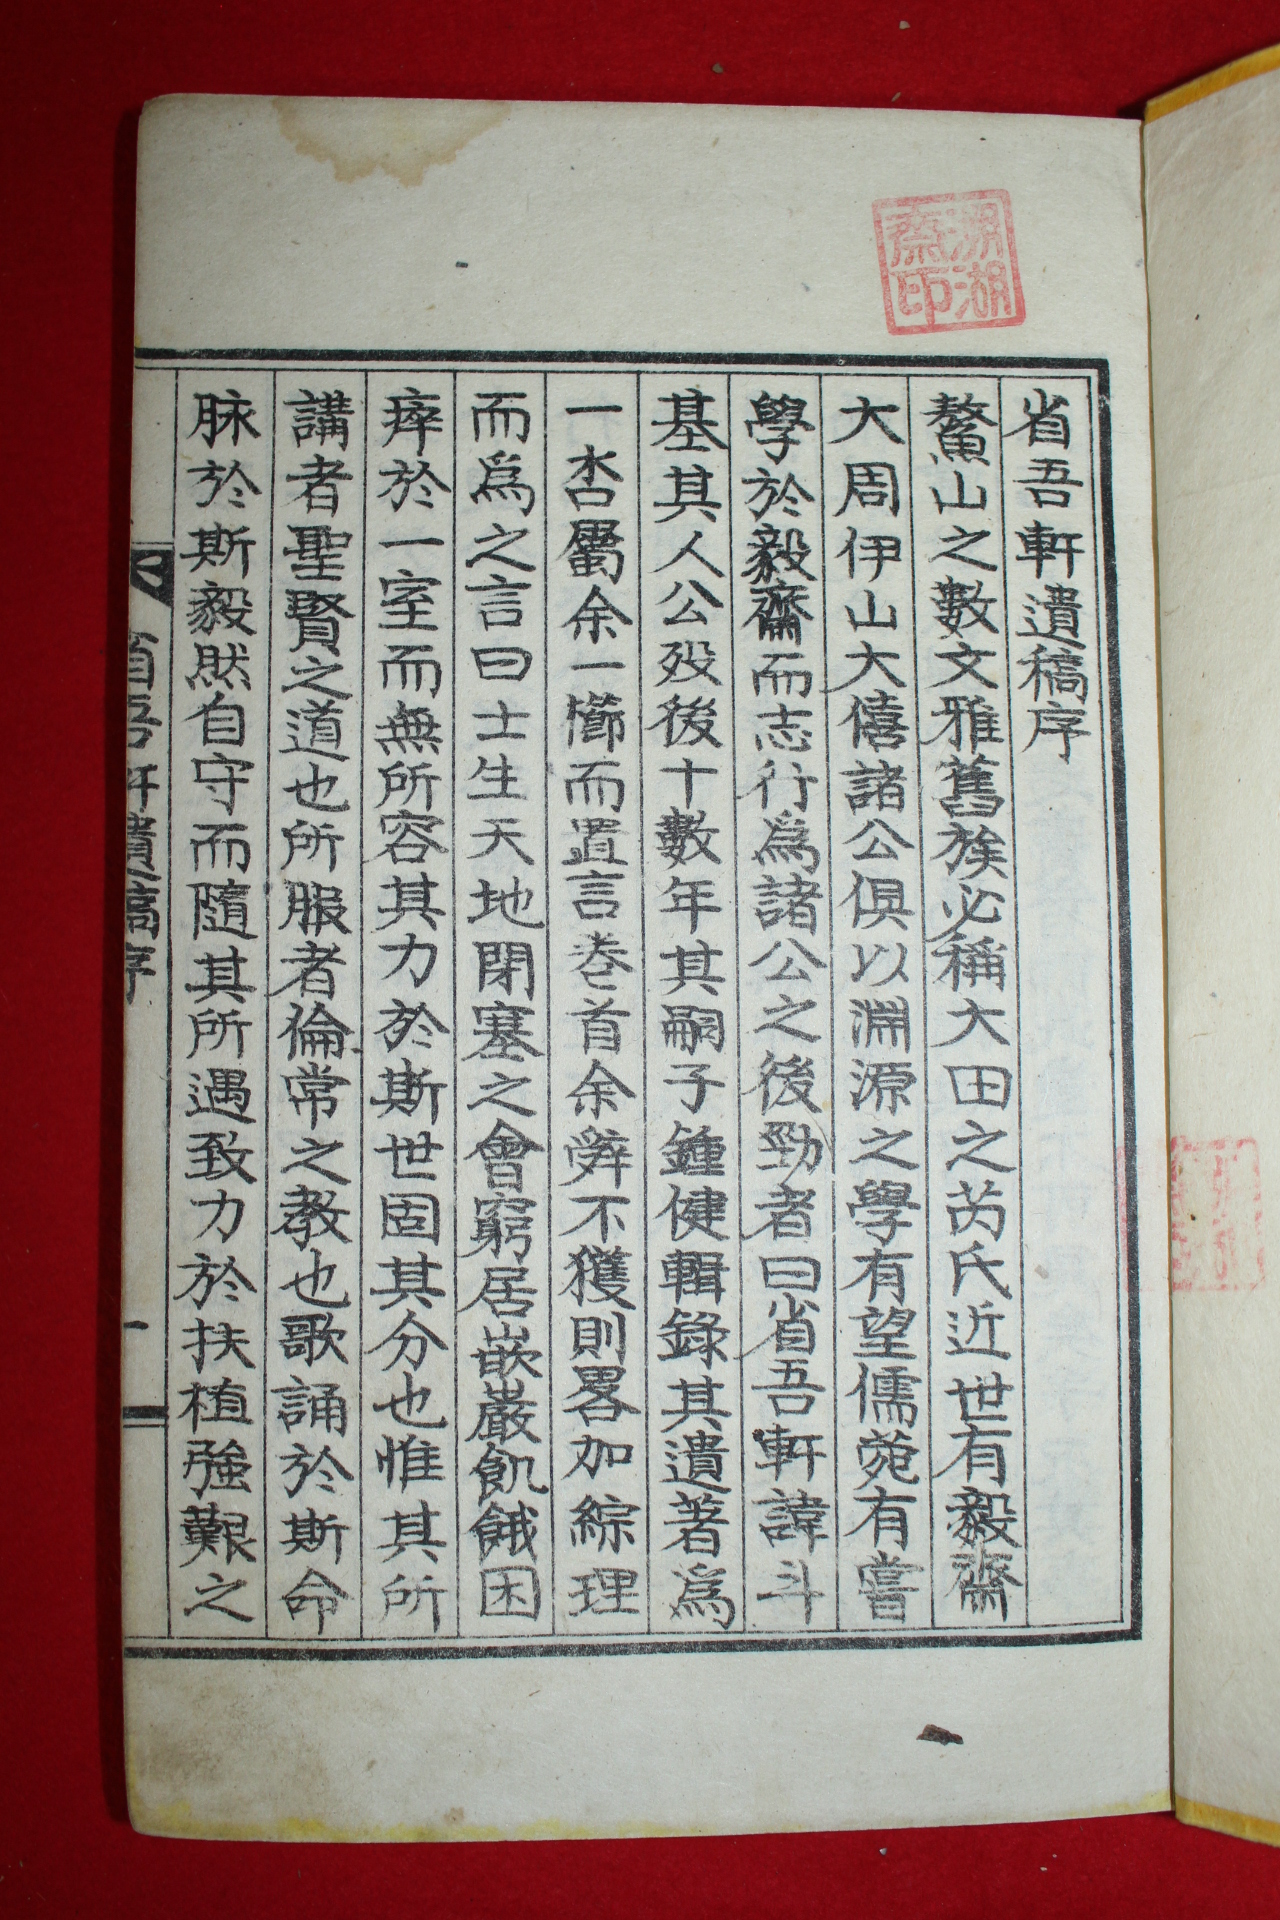 省吾軒遺稿序
鰲山之數文雅舊族必稱大田之芮氏近世有毅齋
大周伊山大僖諸公俱以淵源之學有望儒菀有嘗
學於毅齋而志行爲諸公之後勁者曰省吾軒諱斗
基其人公歿後十數年其嗣子鍾健輯錄其遺著爲
一呇屬余一櫛而置言卷首余辤不獲則畧加綜理
而爲之言曰士生天地閉塞之會窮居嵌巖飢餓困
瘁於一室而無所容其力於斯世固其分也惟其所
講者聖賢之道也所服者倫常之教也歌誦於斯命
脉於斯毅然自守而隨其所遇致力於扶植強艱之
省吾軒遺稿序
一
淵湖齋印